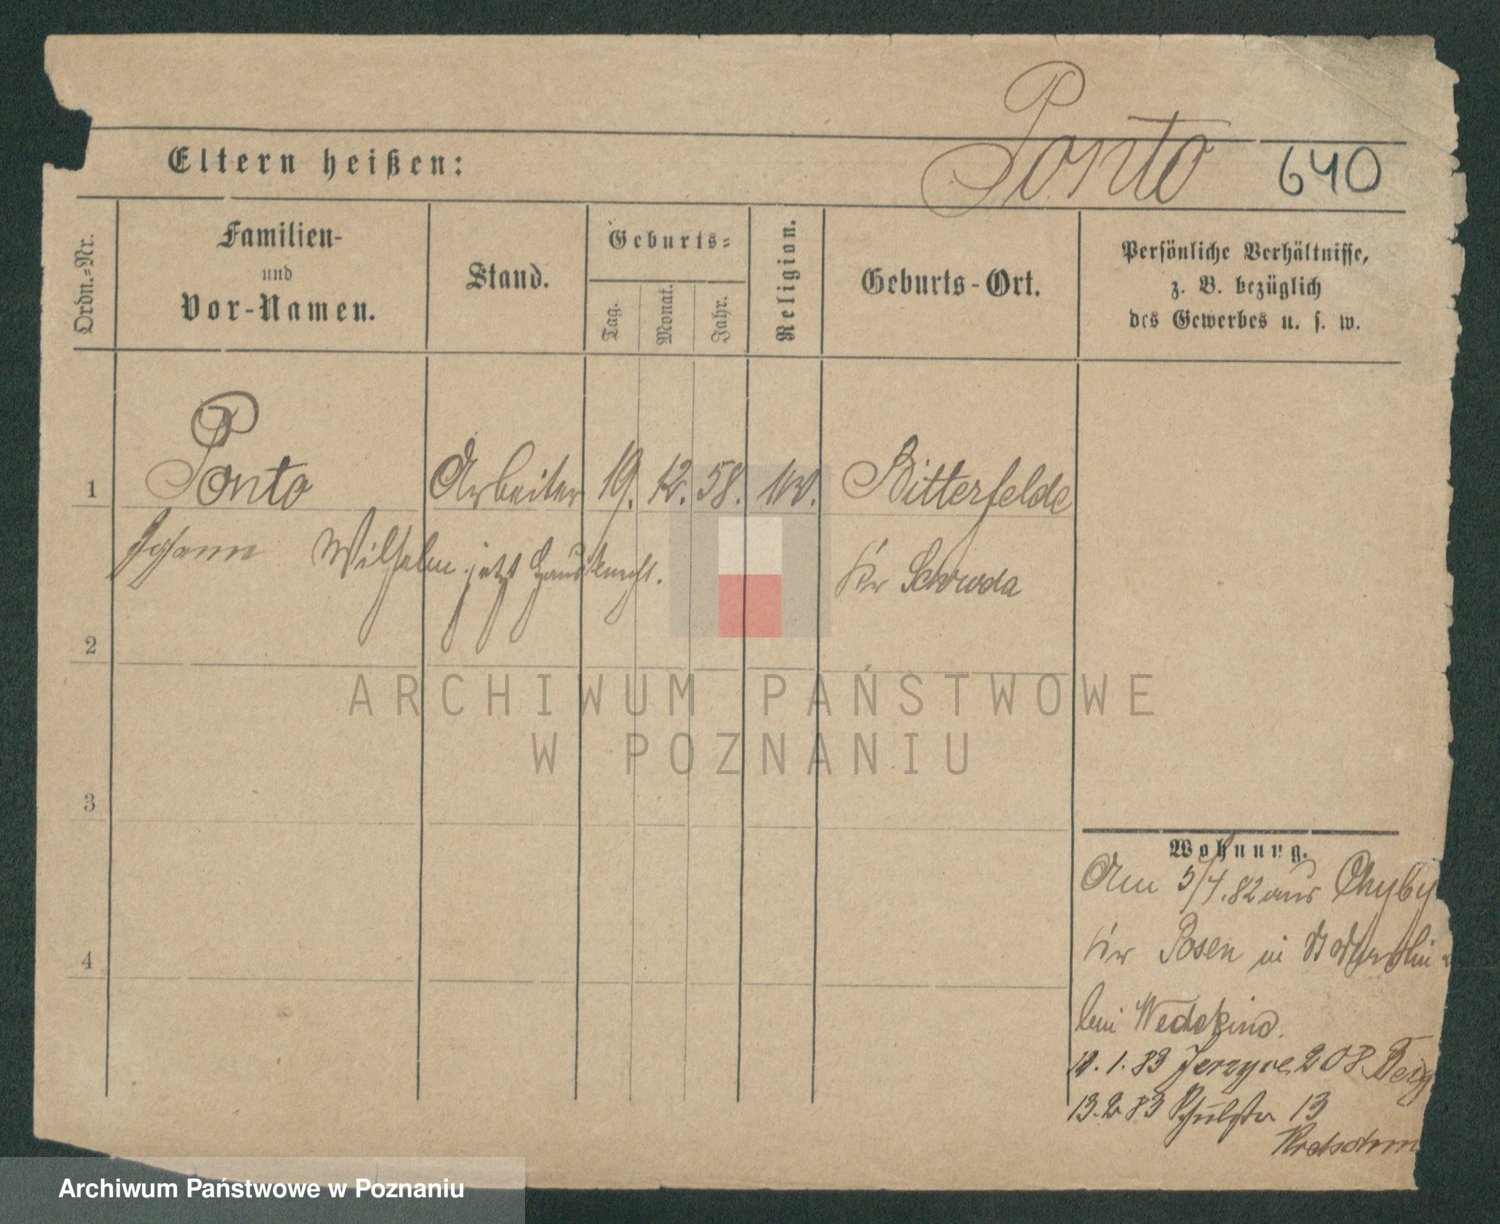 Ponto 640
Eltern heißen:
Ordn.-Nr.
Familien-
und
Vor-Namen.
Stand.
Geburts-
Tag.
Monat.
Jahr.
Religion.
Geburts-Ort.
Persönliche Verhältnisse,
z. B. bezüglich
des Gewerbes u. s. w.
1 Ponto Arbeiter 19. 12. 58. Bitterfelde
Johann Wilhelm jetzt Hausknecht. Kr Schroda
2
3
4
Wohnung.
Am 5/4.82 aus Chyby
Kr Posen in
bei Wedekind.
1.83 208
13.2 83 13
ARCHIWUM PAŃSTWOWE
W POZNANIU
Archiwum Państwowe w Poznaniu